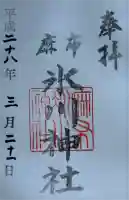 奉拝
麻布
氷川神社
平成二十八年 三月二十一日